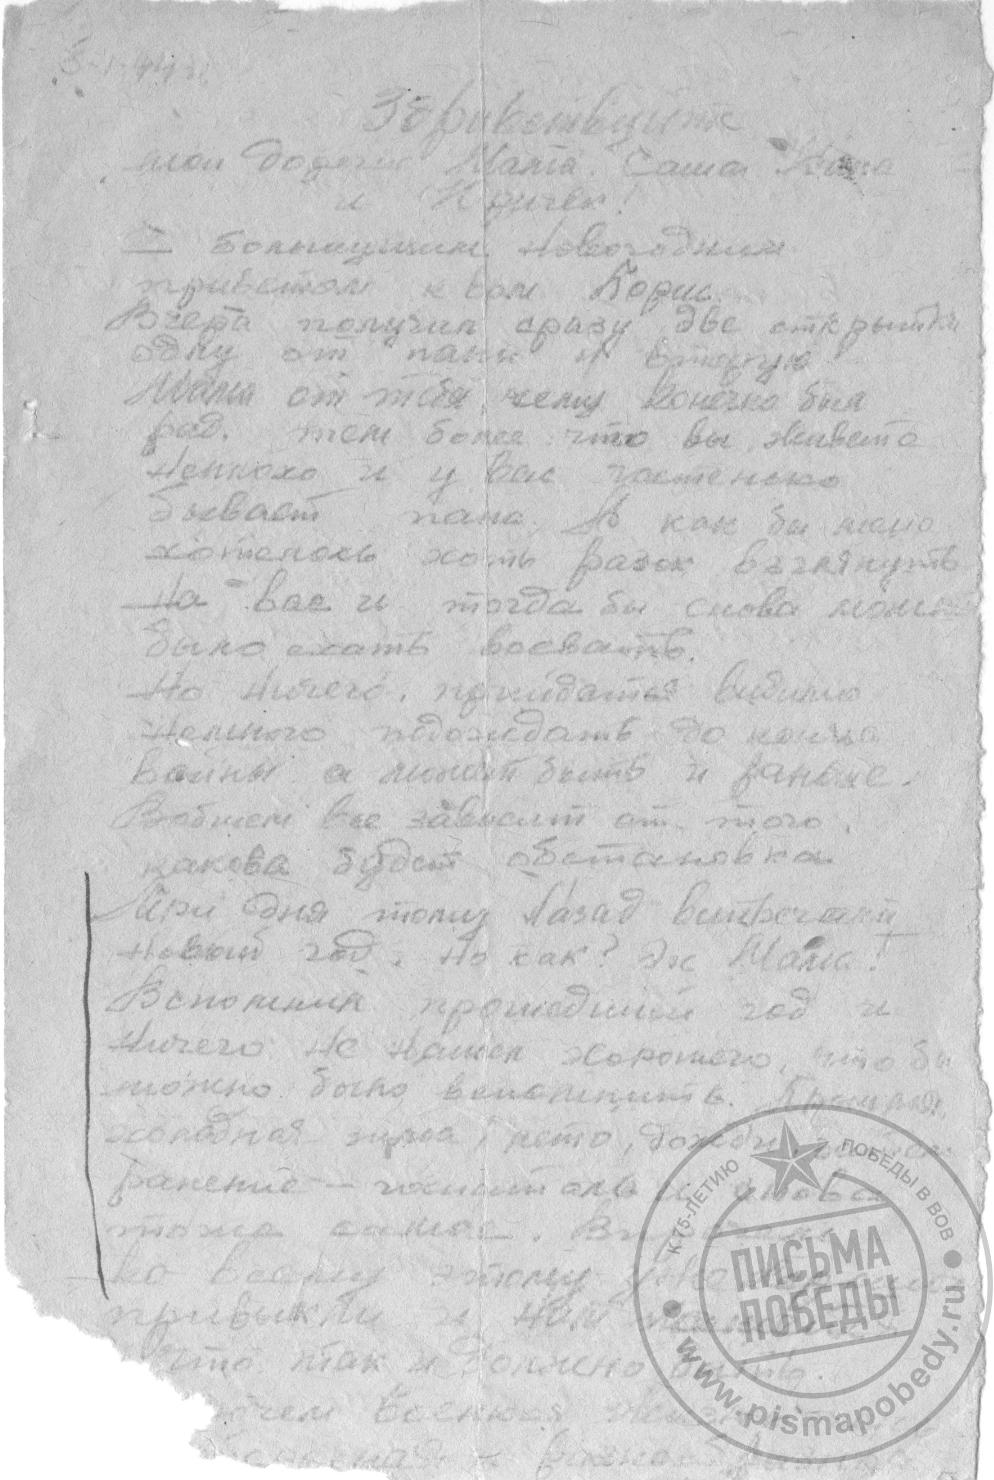 3-1-44 г.
Здравствуйте
мои дорогие Мама, Саша, Нина
и Юрчек!
С большущим новогодним
приветом к вам Борис.
Вчера получил сразу две открытки
одну от папы и вторую
Мама от тебя, чему конечно был
рад. тем более что вы живете
неплохо и у вас частенько
бывает папа. А как бы мне
хотелось хоть разок взглянуть
на вас и тогда бы снова можно
было ехать воевать.
Но ничего, прийдется видимо
немного подождать до конца
войны а может быть и раньше.
Вобщем все зависит от того,
какова будет обстановка
Три дня тому назад встречали
Новый год. Но как? Эх Мама!
Вспомнил прошедший год и
ничего не нашел хорошего, что бы
можно было вспомнить.
холодная зима, лето, дожди,
ранение – госпиталь и снова
тоже самое.
ко всему этому уже
привыкли и нам кажется
что так и должно быть.
военная жизнь
и
К 75-ЛЕТИЮ ПОБЕДЫ В ВОВ
ПИСЬМА
ПОБЕДЫ
www.pismapobedy.ru